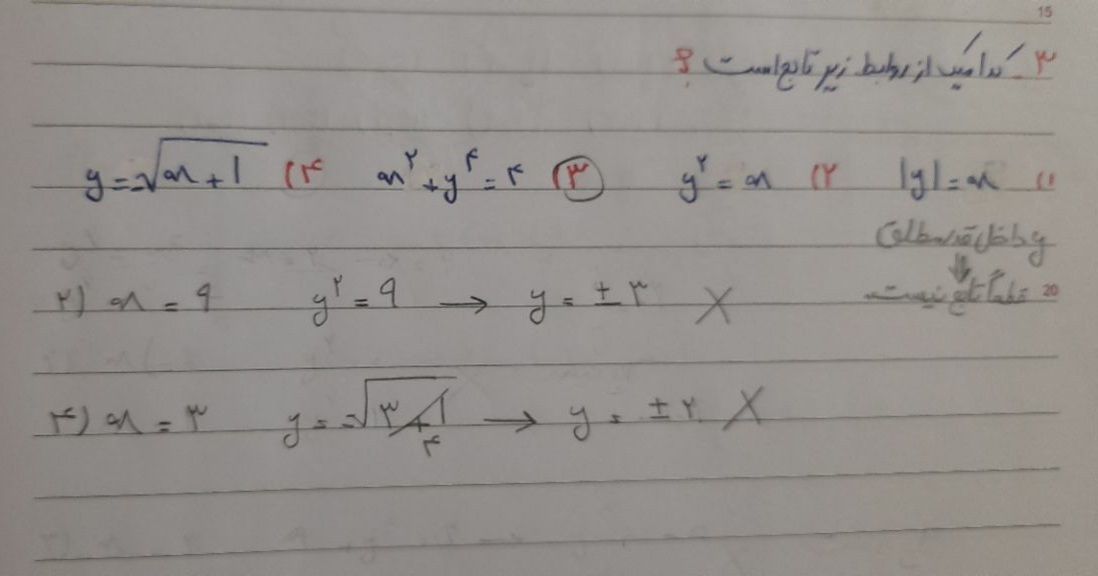 15
۳ـ کدام‌یک از روابط زیر تابع است؟
۱) |y| = x ۲) y² = x ۳) x² + y⁴ = ۴ ۴) y = √x + ۱
y داخل قدرمطلق
⇓
قطعاً تابع نیست. 20
۲) x = ۹ y² = ۹ → y = ± ۳ X
۴) x = ۳ y = √۳ + ۱ ۴ → y = ± ۲ X